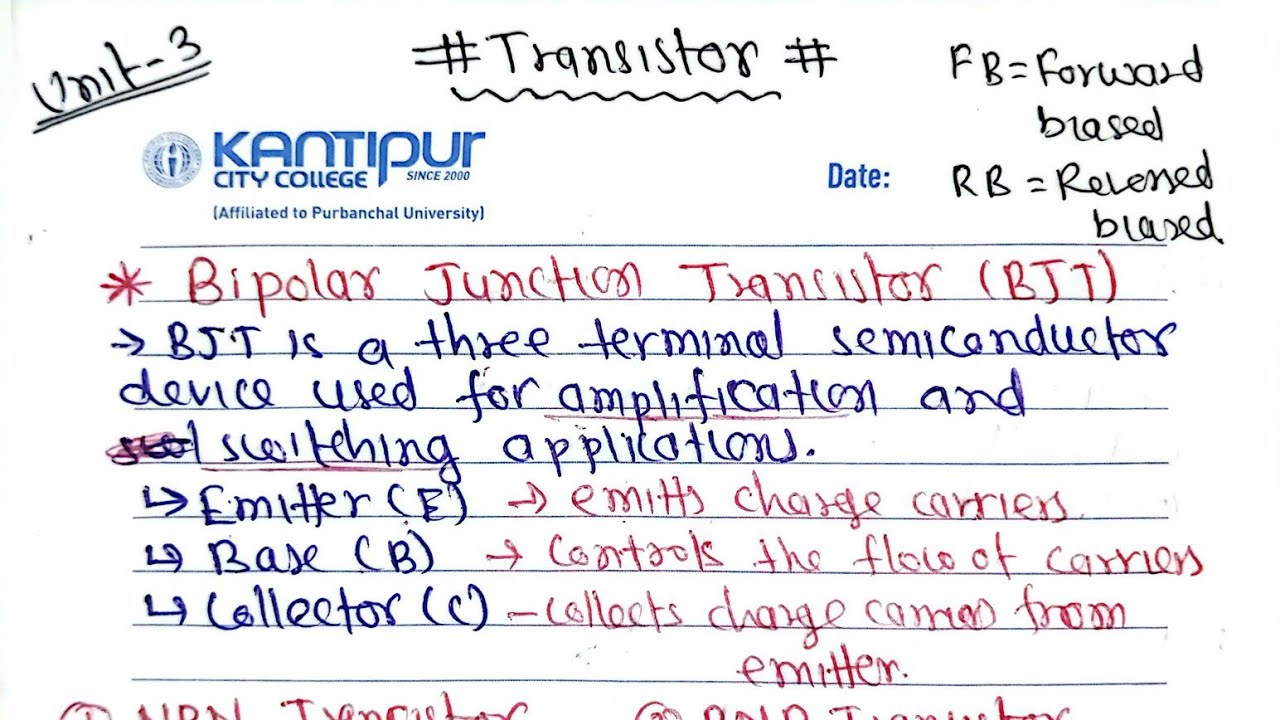 Unit-3
# Transistor #
FB = Forward
biased
RB = Reversed
biased
KANTIPUR
CITY COLLEGE SINCE 2000
(Affiliated to Purbanchal University)
Date:
* Bipolar Junction Transistor (BJT)
→ BJT is a three terminal semiconductor
device used for amplification and
switching applications.
↳ Emitter (E) → emitts charge carriers
↳ Base (B) → Controls the flow of carriers
↳ Collector (C) - collects charge carries from
emitter.
① NPN Transistor ② PNP Transistor